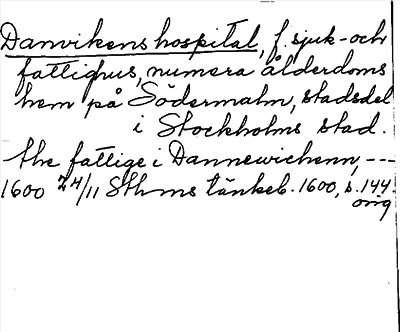 Danvikens hospital, f. sjuk- och
fattighus, numera ålderdoms
hem på Södermalm, stadsdel
i Stockholms stad.
the fattige i Dannewichenn, ---
1600 24/11 Sthms tänkeb. 1600, s. 144
orig